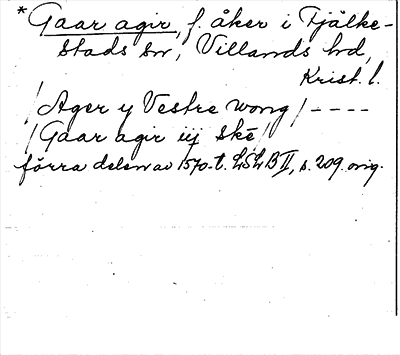 * Gaar agir, f. åker i Fjälke-
stads sn, Villands hd,
Krist. l.
/ Ager y Vestre wong / - - - -
/ Gaar agir iij skē /
förra delen av 1570-t. LSLB II, s. 209. orig.